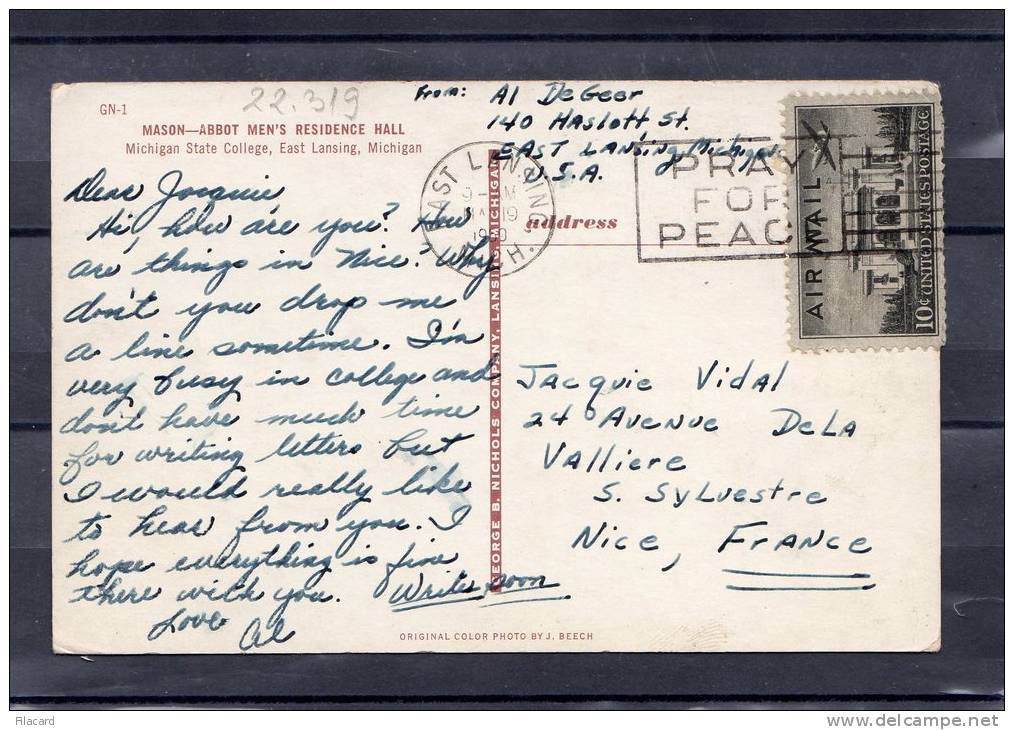 GN-1
22.319
MASON—ABBOT MEN'S RESIDENCE HALL
Michigan State College, East Lansing, Michigan
From: Al DeGeer
140 Haslett St.
EAST LANSING, Michigan
U.S.A.
EAST LANSING, MICH.
19
PRAY
FOR
PEACE
AIR MAIL
10¢ UNITED STATES POSTAGE
address
Dear Jacquie
Hi, how are you? How
are things in Nice. Why
don't you drop me
a line sometime. I'm
very busy in college and
don't have much time
for writing letters but
I would really like
to hear from you. I
hope everything is fine
there with you. Write soon
Love
Al
GEORGE B. NICHOLS COMPANY, LANSING, MICHIGAN
Jacquie Vidal
24 Avenue De La
Valliere
S. Sylvestre
Nice, France
ORIGINAL COLOR PHOTO BY J. BEECH
Filacard
www.delcampe.net